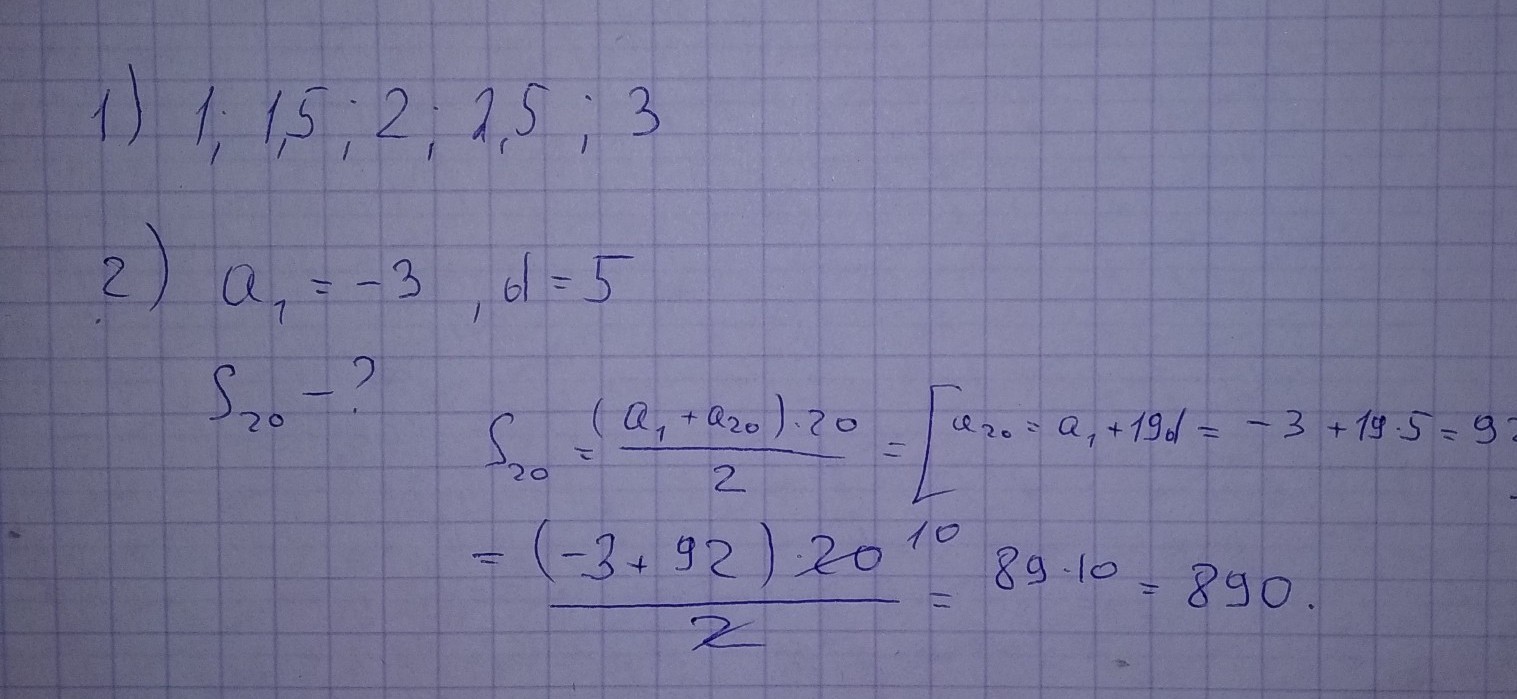 1) 1; 1,5; 2; 2,5; 3
2) a₁ = -3, d = 5
S₂₀ - ?
S₂₀ = (a₁ + a₂₀)·20 / 2 = [a₂₀ = a₁ + 19d = -3 + 19·5 = 92
= (-3 + 92)·20 10 / 2 = 89·10 = 890.